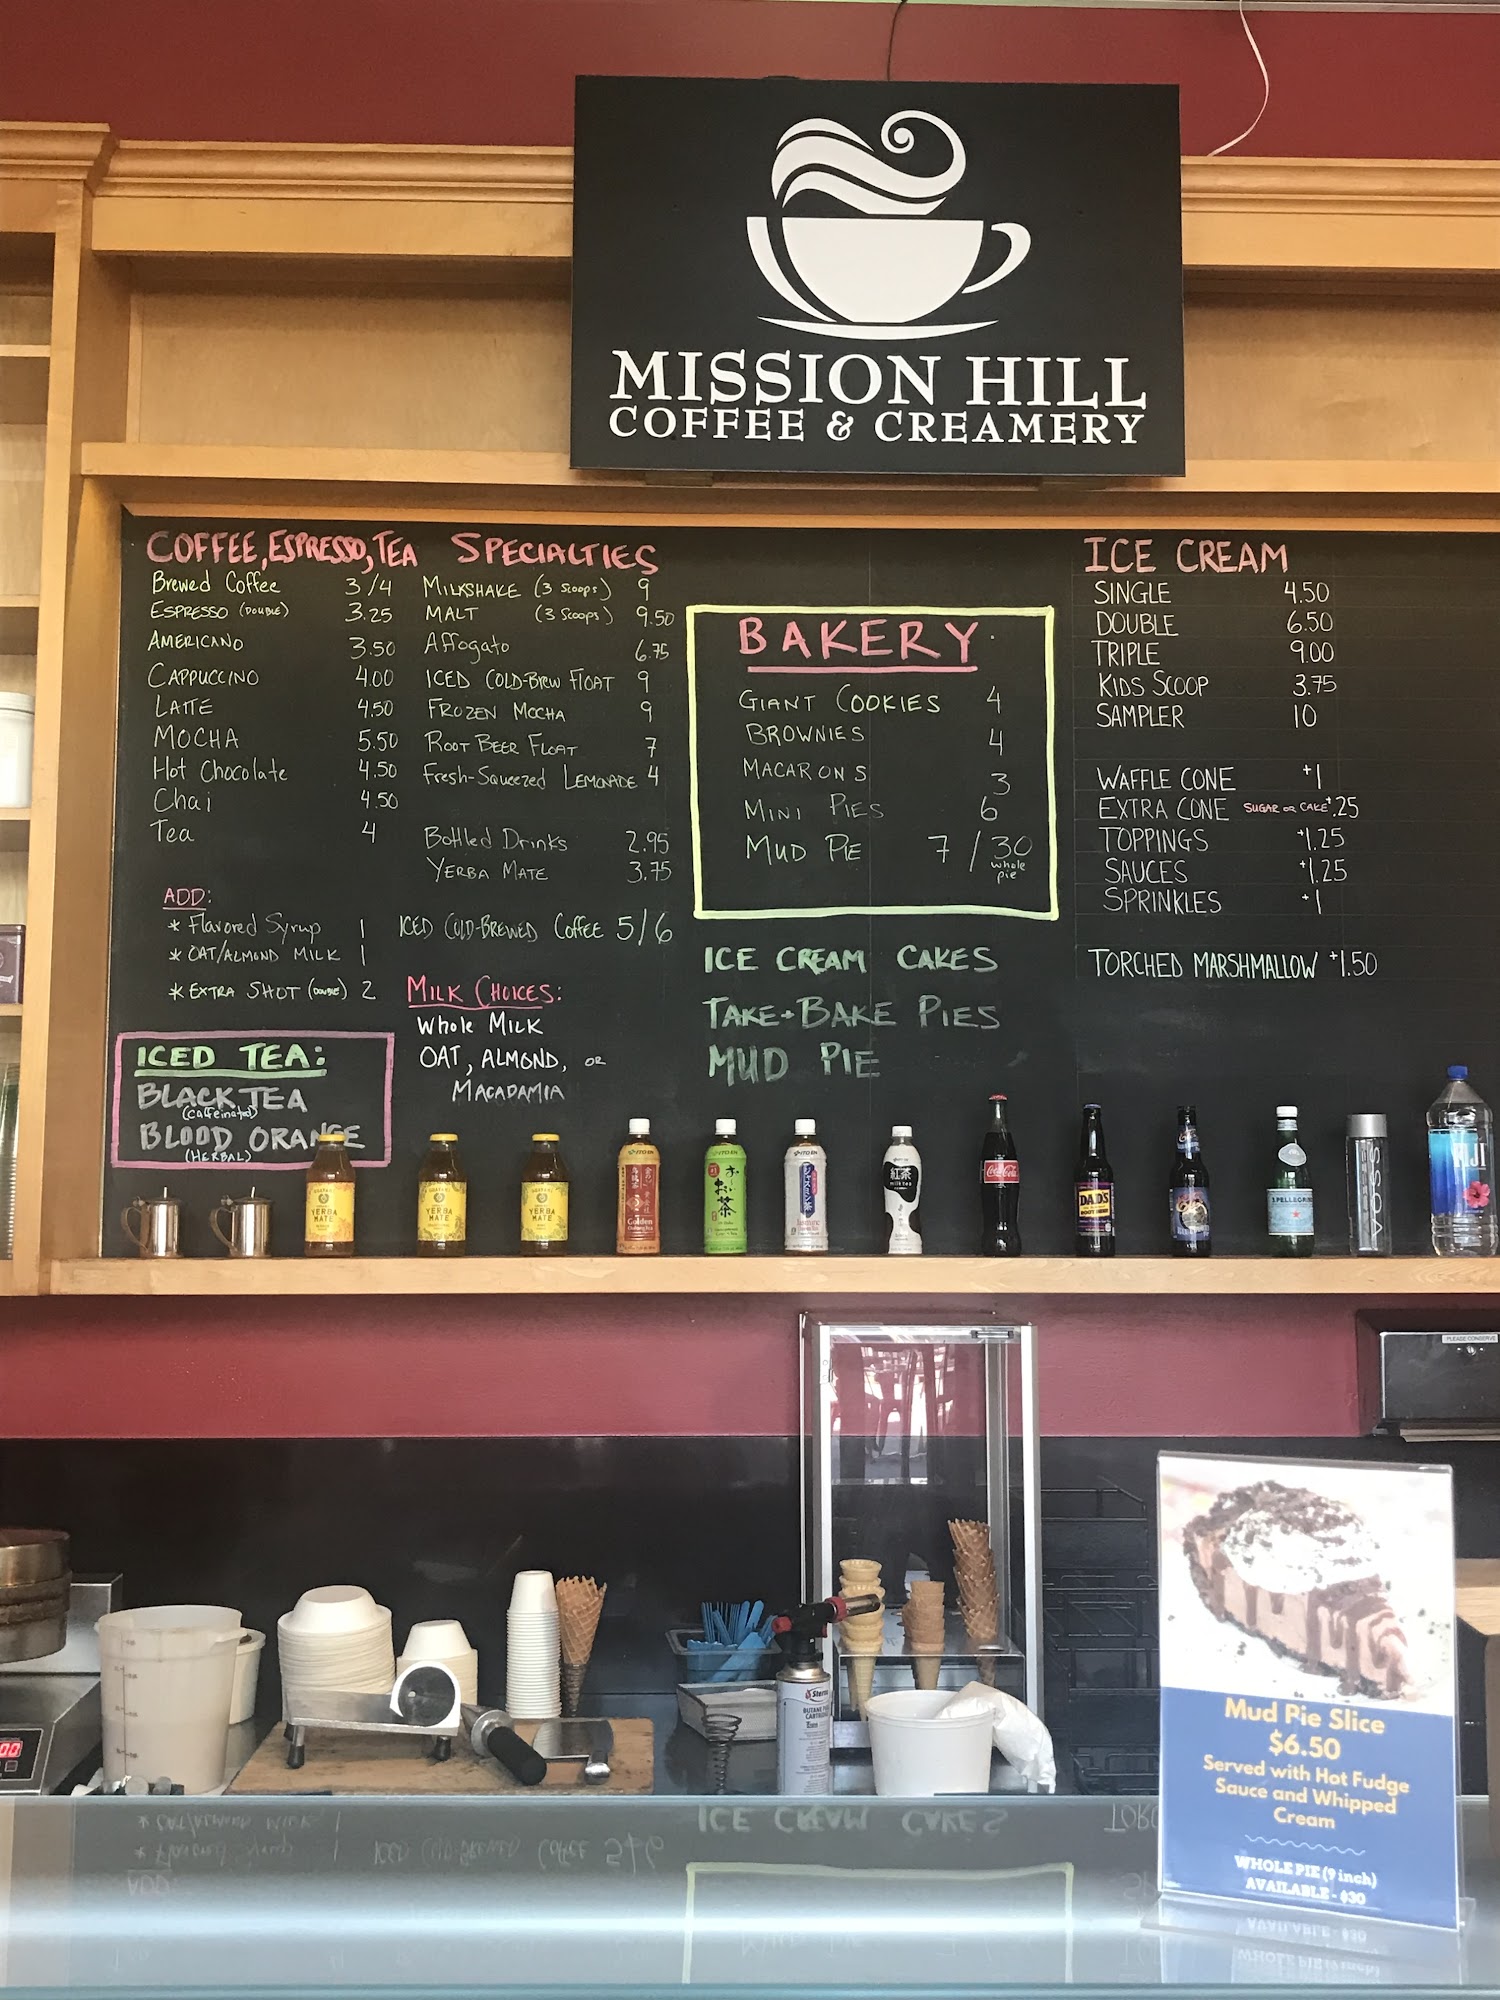 MISSION HILL
COFFEE & CREAMERY
COFFEE, ESPRESSO, TEA
Brewed Coffee 3/4
ESPRESSO (DOUBLE) 3.25
AMERICANO 3.50
CAPPUCCINO 4.00
LATTE 4.50
MOCHA 5.50
Hot Chocolate 4.50
Chai 4.50
Tea 4
ADD:
* Flavored Syrup 1
* OAT/ALMOND MILK 1
* EXTRA SHOT (DOUBLE) 2
ICED TEA:
BLACK TEA
(caffeinated)
BLOOD ORANGE
(HERBAL)
SPECIALTIES
MILKSHAKE (3 Scoops) 9
MALT (3 Scoops) 9.50
Affogato 6.75
ICED COLD-BREW FLOAT 9
FROZEN MOCHA 9
ROOT BEER FLOAT 7
Fresh-Squeezed LEMONADE 4
Bottled Drinks 2.95
YERBA MATE 3.75
ICED COLD-BREWED COFFEE 5/6
MILK CHOICES:
Whole MILK
OAT, ALMOND, OR
MACADAMIA
BAKERY
GIANT COOKIES 4
BROWNIES 4
MACARONS 3
MINI PIES 6
MUD PIE 7 / 30
whole
pie
ICE CREAM CAKES
TAKE+BAKE PIES
MUD PIE
ICE CREAM
SINGLE 4.50
DOUBLE 6.50
TRIPLE 9.00
KIDS SCOOP 3.75
SAMPLER 10
WAFFLE CONE +1
EXTRA CONE SUGAR OR CAKE +.25
TOPPINGS +1.25
SAUCES +1.25
SPRINKLES +1
TORCHED MARSHMALLOW +1.50
YERBA
MATE
YERBA
MATE
YERBA
MATE
ITO EN
Golden
ITO EN
お～いお茶
ITO EN
ジャスミン茶
Jasmine
紅茶
milk tea
Coca-Cola
DAD'S
ROOT BEER
S.PELLEGRINO
VOSS
FIJI
PLEASE CONSERVE
Sterno
BUTANE FUEL
CARTRIDGE
Mud Pie Slice
$6.50
Served with Hot Fudge
Sauce and Whipped
Cream
WHOLE PIE (9 inch)
AVAILABLE - $30